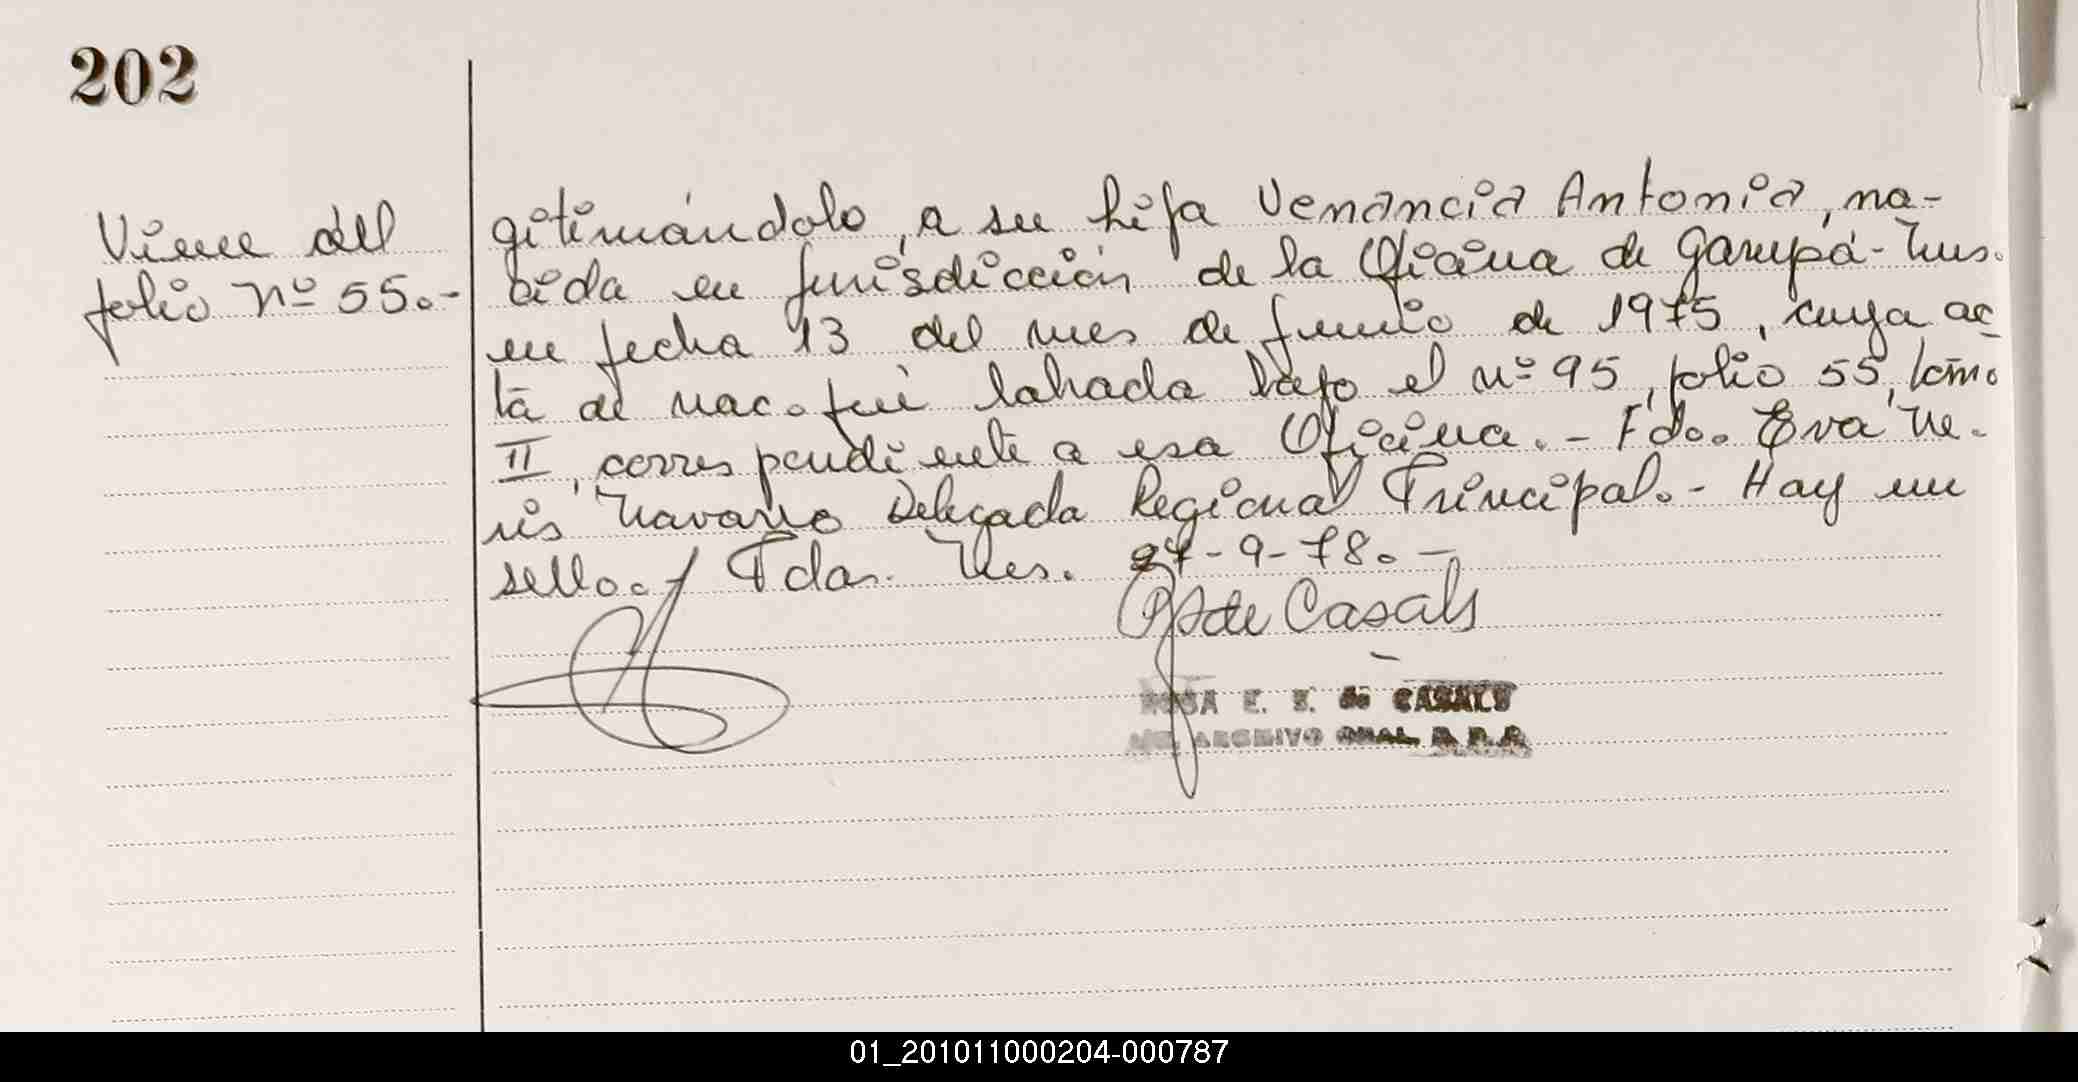 202
Viene del
folio Nº 55.-
gitimándolo, a su hija Venancia Antonia, na-
cida en jurisdicción de la Oficina de Garupá-Mns.
en fecha 13 del mes de junio de 1975, cuya ac
ta de nac. fué labrada bajo el nº 95, folio 55, tomo
II, correspondiente a esa Oficina.- Fdo. Eva Ne-
ris Navarro Delegada Regional Principal.- Hay un
sello. Pdas. Mns. 27-9-78.-
de Casals
ROSA E. de CASALS
ARCHIVO GRAL.
01_201011000204-000787